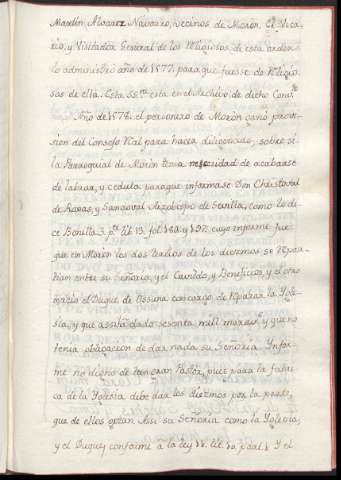 Martin Alvarez Navarro, vecinos de Morón. El Vica-
rio, y Visitador General de los Religiosos de esta orden
lo administró año de 1577. para que fuese de Religio-
sas de ella. Esta ss.ra esta en el archivo de dicho Conv.to
Año de 1578. el personero de Morón ganó provi-
sion del Consejo Rl. para hacer diligencias, sobre si
la Parroquial de Morón tenia necesidad de acabarse
de labrar, y cedula para que informase Don Christoval
de Roxas, y Sandoval Arzobispo de Sevilla, como lo di-
ce Bonilla 3. p. fol. 182 y 192. cuyo informe fue
que en Morón los dos tercios de los diezmos se repar-
tian entre su Señoria, y el Cavildo, y Beneficios y el otro
tercio el Duque de Ossuna con cargo de reparar la Igle-
sia, y que assi ha dado sesenta mill marav.s y que no
tenia obligacion de dar nada su Señoria. Infor-
me no digno de tan gran Pastor, pues para la fabri-
ca de la Iglesia debe dar los diezmos por la parte,
que de ellos optan Assi su Señoria como la Iglesia,
y el Duque, conforme a la ley 11. tit. 10. part. 1. Y el